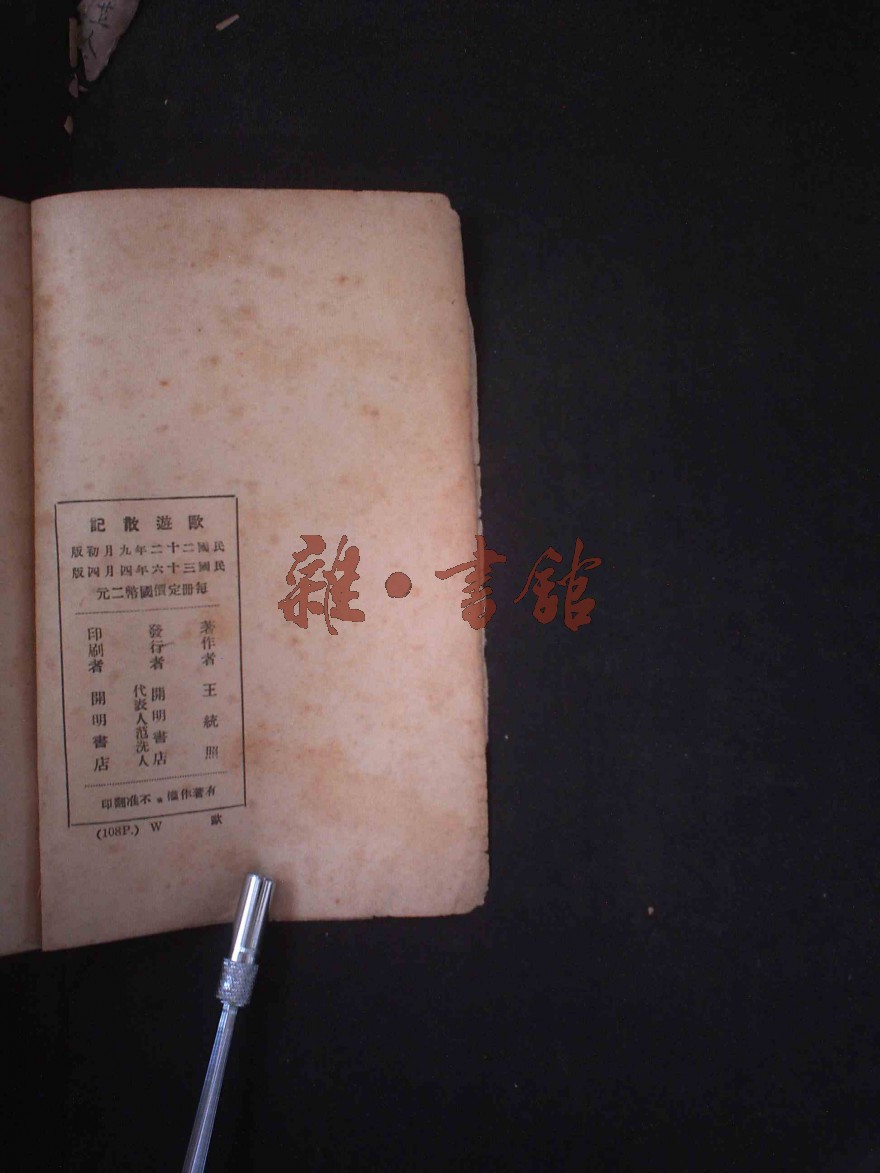 歐遊散記
民國二十二年九月初版
民國三十六年四月四版
每冊定價國幣二元
著作者 王統照
發行者 開明書店
代表人范洗人
印刷者 開明書店
有著作權 不准翻印
(108P.) W 歐
雜·書館